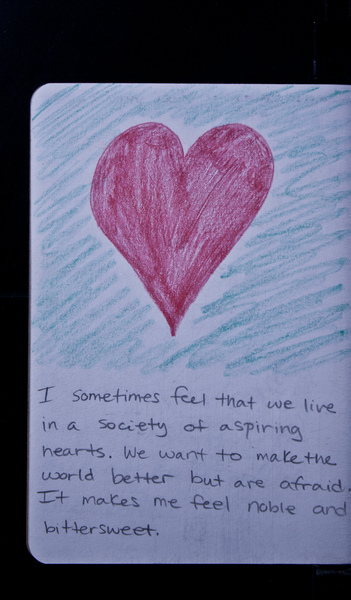 I sometimes feel that we live
in a society of aspiring
hearts. We want to make the
world better but are afraid.
It makes me feel noble and
bittersweet.